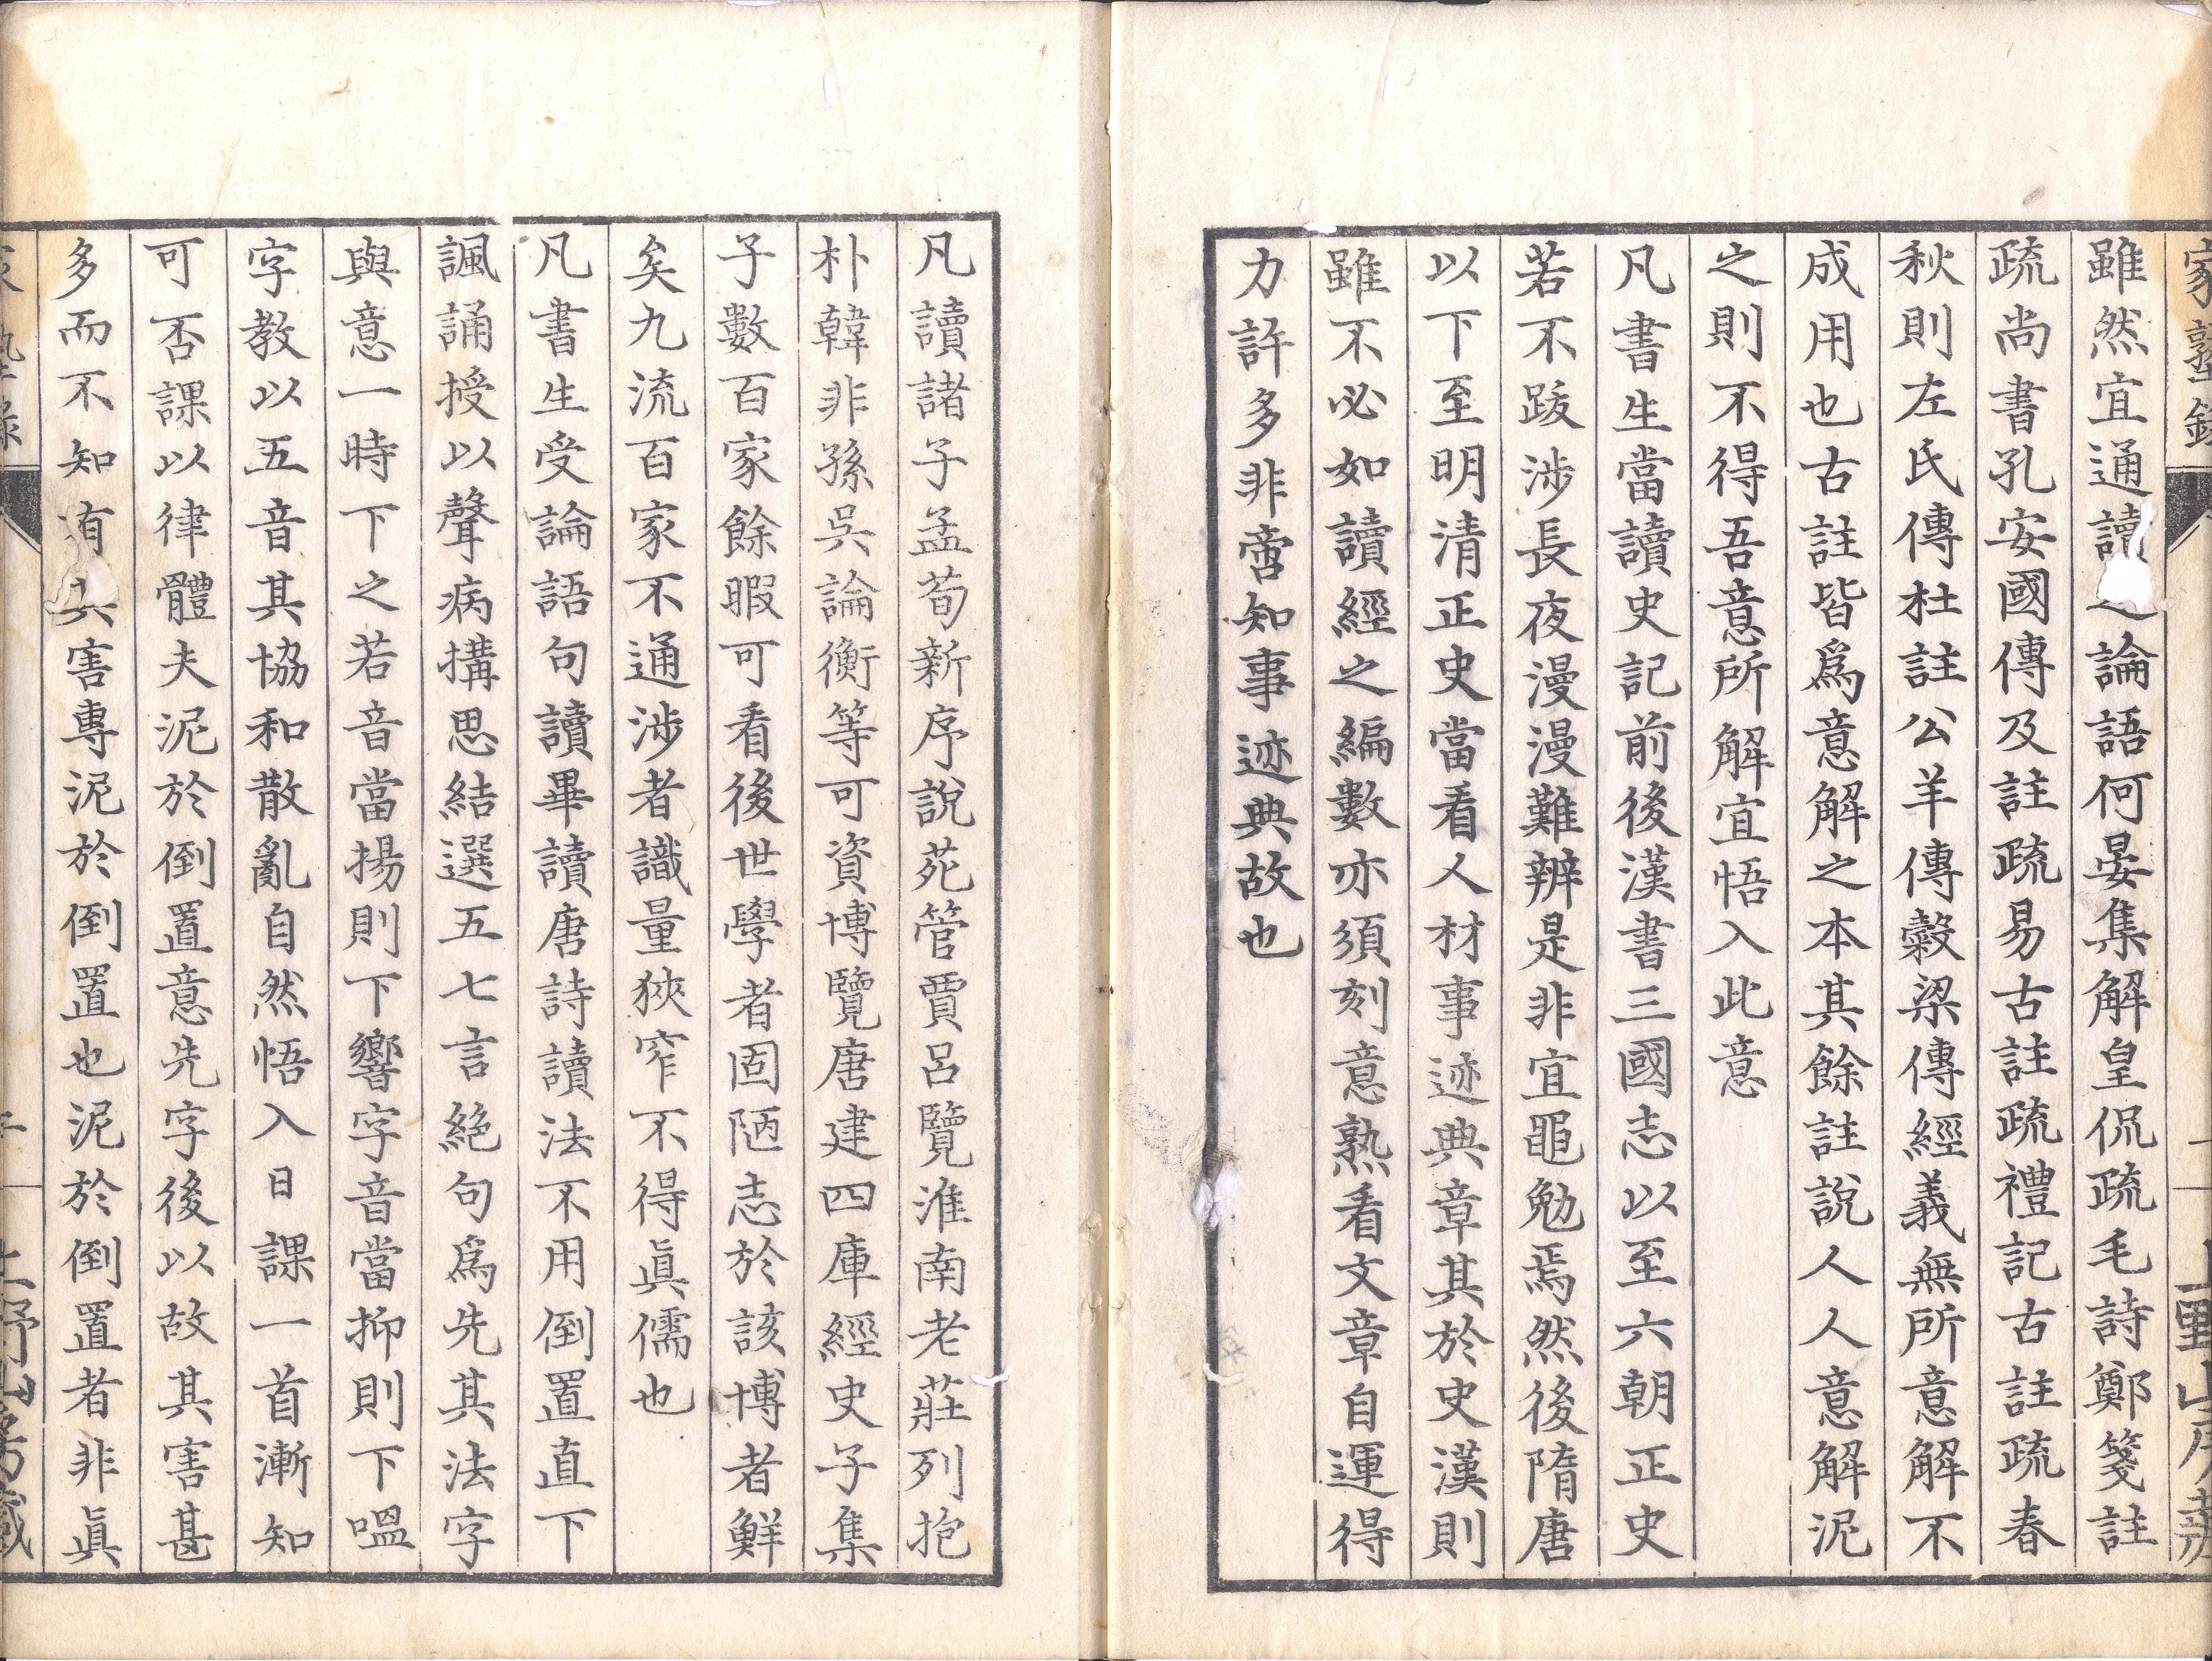 家塾
雖然宜通讀論語何晏集解皇侃疏毛詩鄭箋註
疏尚書孔安國傳及註疏易古註疏禮記古註疏春
秋則左氏傳杜註公羊傳糓梁傳經義無所意解不
成用也古註皆爲意解之本其餘註說人人意解泥
之則不得吾意所解宜悟入此意
凡書生當讀史記前後漢書三國志以至六朝正史
若不跋涉長夜漫漫難辨是非宜黽勉焉然後隋唐
以下至明清正史當看人材事迹典章其於史漢則
雖不必如讀經之編數亦須刻意熟看文章自運得
力許多非啻知事迹典故也
凡讀諸子孟荀新序說苑管賈呂覽淮南老莊列抱
朴韓非孫吳論衡等可資博覽唐建四庫經史子集
子數百家餘暇可看後世學者固陋志於該博者鮮
矣九流百家不通涉者識量狹窄不得眞儒也
凡書生受論語句讀畢讀唐詩讀法不用倒置直下
諷誦授以聲病搆思結選五七言絕句爲先其法字
與意一時下之若音當揚則下響字音當抑則下嗢
字教以五音其協和散亂自然悟入日課一首漸知
可否課以律體夫泥於倒置意先字後以故其害甚
多而不知有其害專泥於倒置也泥於倒置者非眞